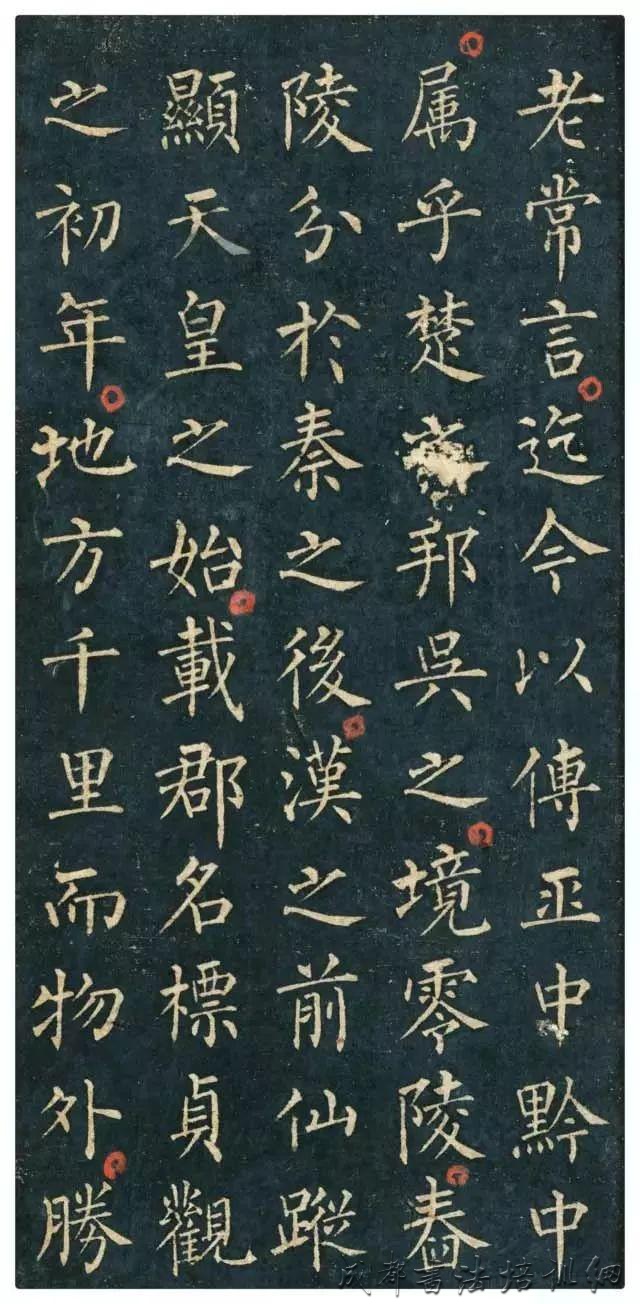 老常言迄今以傳巫中黔中
属乎楚邦吳之境零陵舂
陵分於秦之後漢之前仙蹤
顯天皇之始載郡名標貞觀
之初年地方千里而物外勝
成都書法培训網